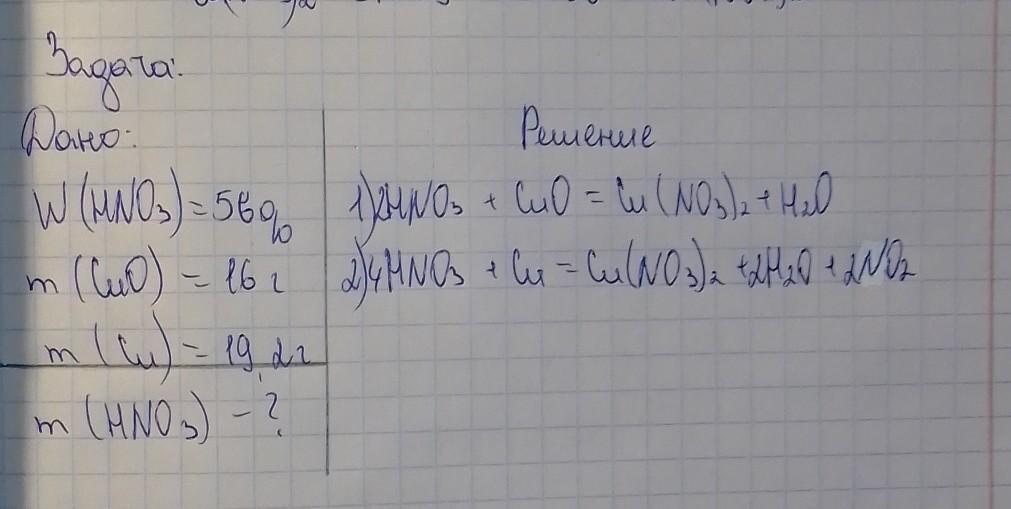 Задача:
Дано:
W(HNO₃)=56%
m(CuO)=16г
m(Cu)=19,2г
m(HNO₃)-?
Решение
1)2HNO₃+CuO=Cu(NO₃)₂+H₂O
2)4HNO₃+Cu=Cu(NO₃)₂+2H₂O+2NO₂